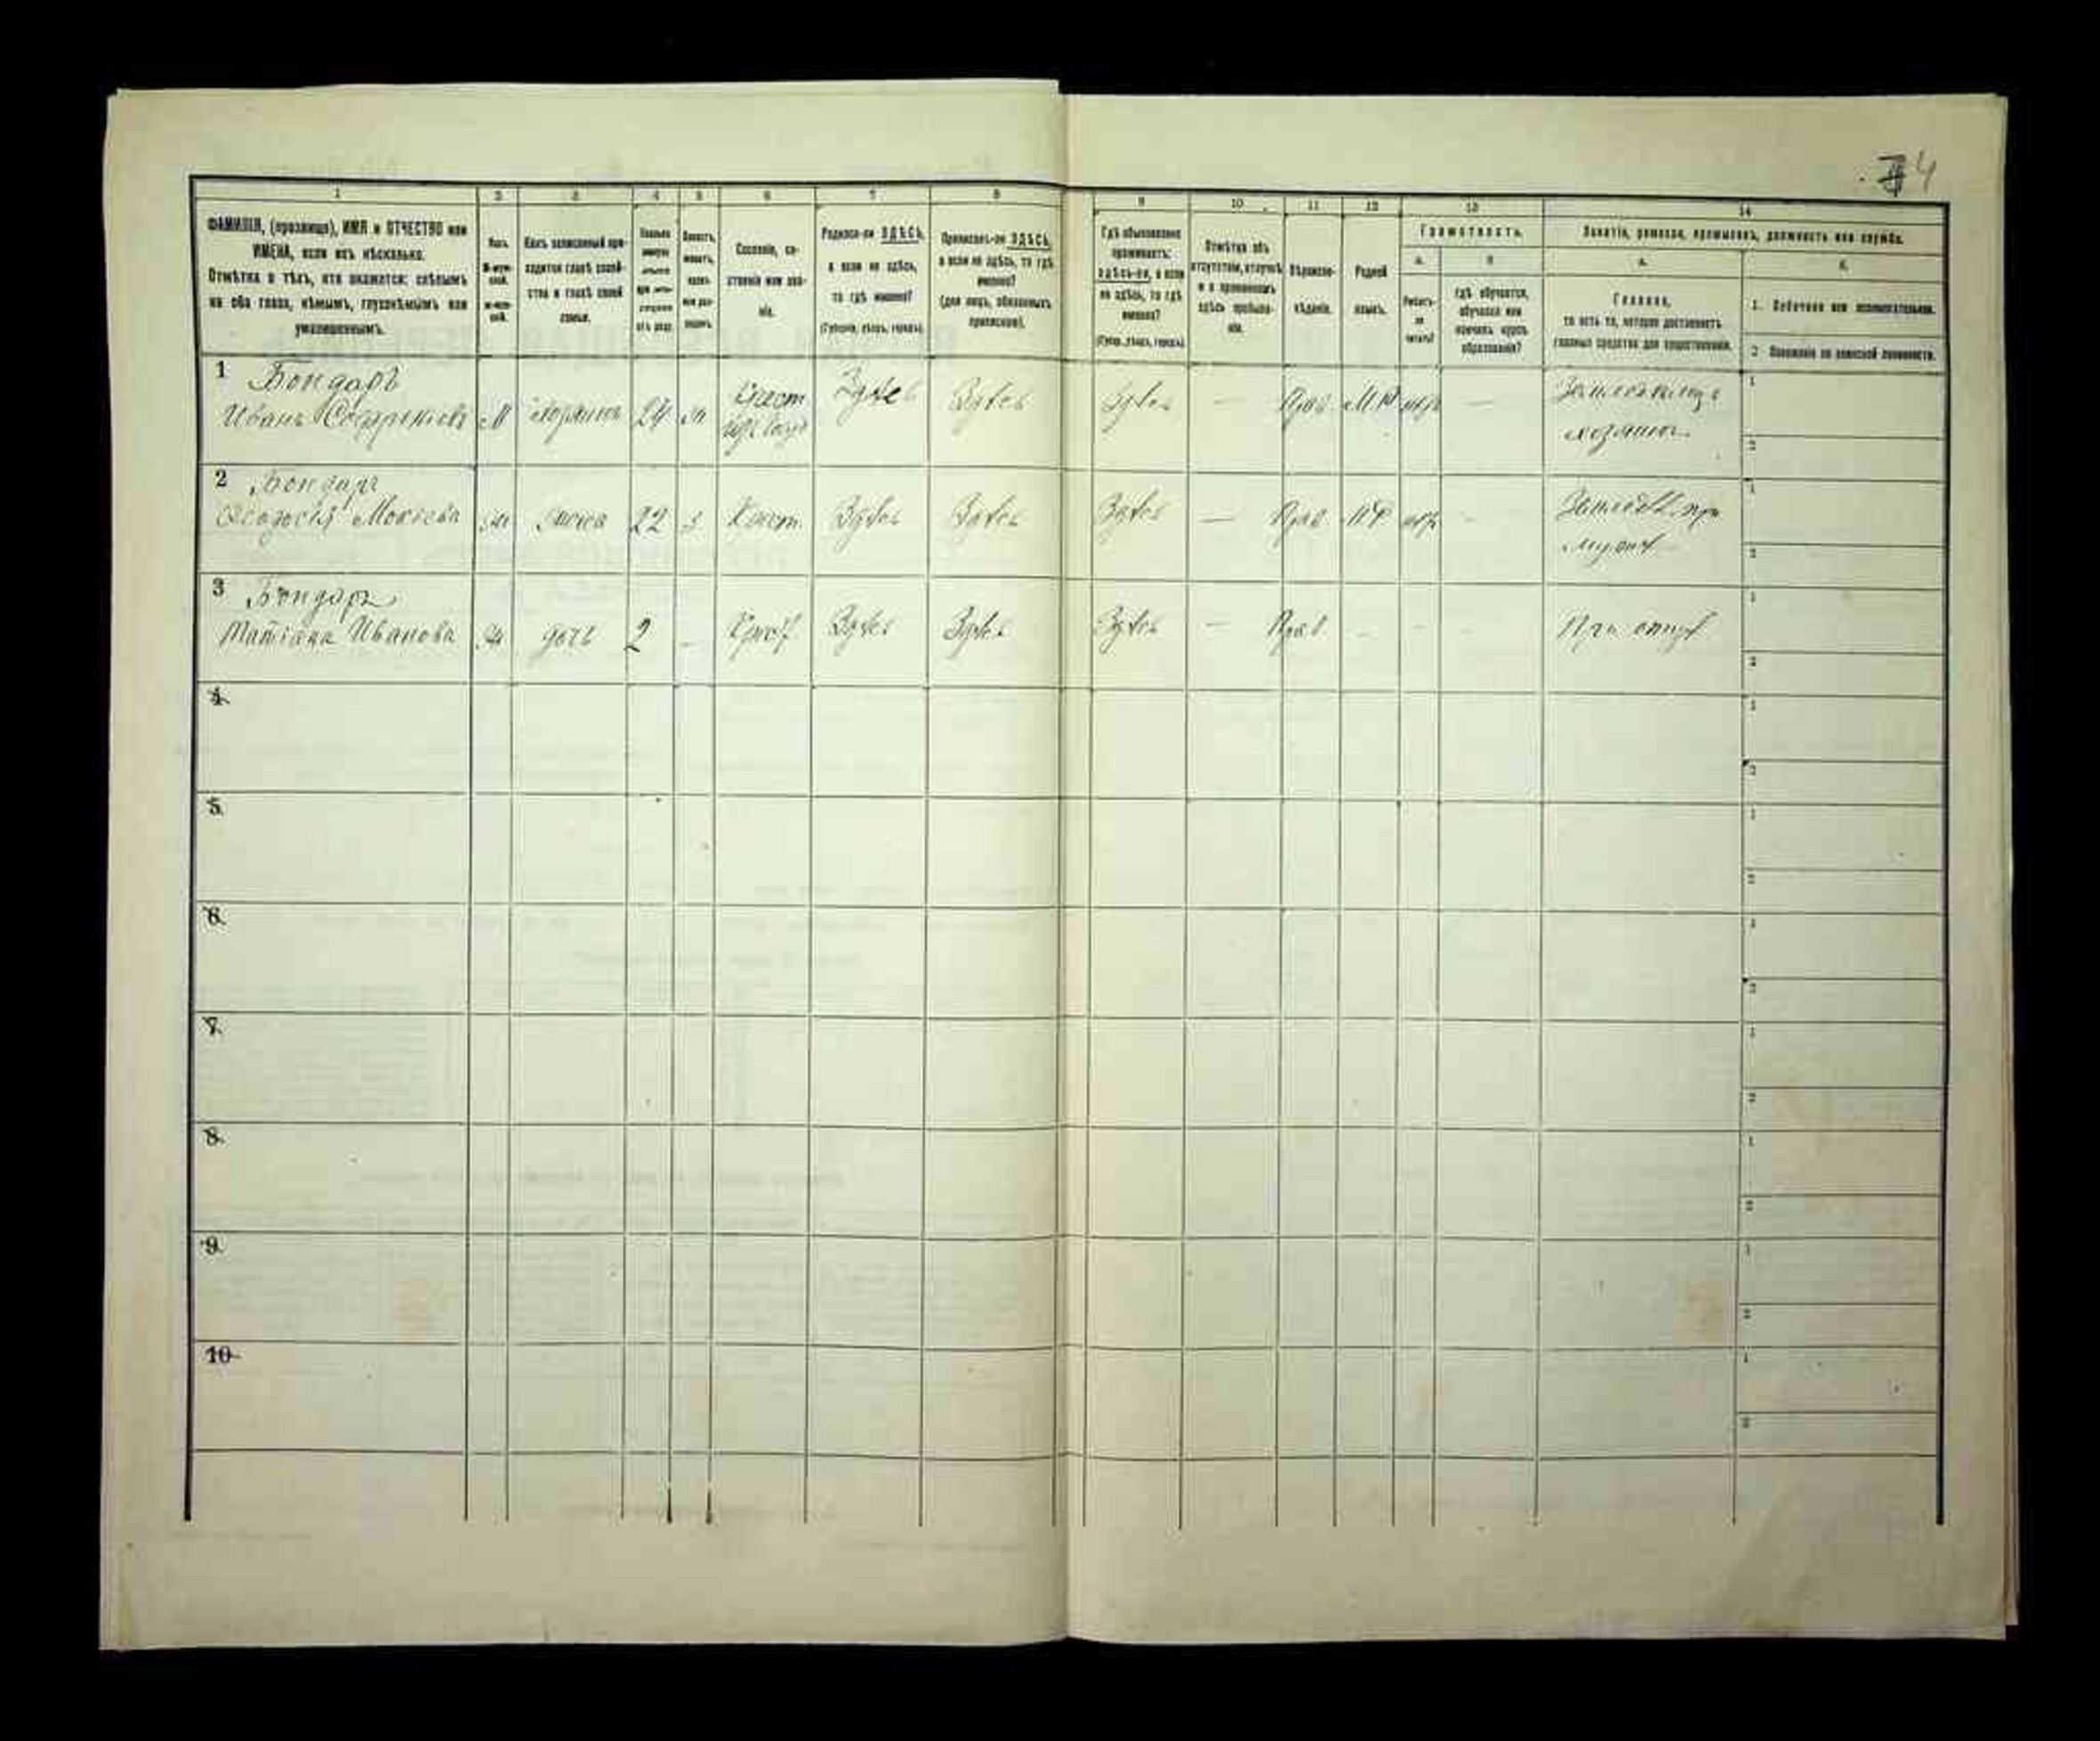 4
1 2 3 4 5 6 7 8 9 10 11 12 13 14
ФАМИЛІЯ, (прозвище), ИМЯ и ОТЧЕСТВО или
ИМЕНА, если ихъ нѣсколько.
Отмѣтка о тѣхъ, кто окажется: слѣпымъ
на оба глаза, нѣмымъ, глухонѣмымъ или
умалишеннымъ.
Полъ.
Какъ записанный при-
ходится главѣ хозяй-
ства и главѣ своей
семьи.
Сословіе, со-
стояніе или зва-
ніе.
Родился-ли ЗДѢСЬ,
а если не здѣсь,
то гдѣ именно?
(Губернія, уѣздъ, городъ).
Приписанъ-ли ЗДѢСЬ,
а если не здѣсь, то гдѣ
именно?
(для лицъ, обязанныхъ
припиской).
Гдѣ обыкновенно
проживаетъ:
здѣсь-ли, а если
не здѣсь, то гдѣ
именно?
(Губер., уѣздъ, городъ).
Отмѣтка объ
отсутствіи, отлучкѣ
и о временномъ
здѣсь пребыва-
ніи.
Вѣроиспо-
вѣданіе.
Родной
языкъ.
Грамотность.
а. б.
Умѣетъ-
ли
читать?
Гдѣ обучается,
обучался или
кончилъ курсъ
образованія?
Занятіе, ремесло, промыселъ, должность или служба.
а. б.
Главное,
то есть то, которое доставляетъ
главныя средства для существованія.
1. Побочное или вспомогательное.
2. Положеніе по воинской повинности.
1 Бондарь
Иванъ М 24 Крест Здѣсь Здѣсь Здѣсь — Прав. — хозяинъ 1 2
2 Бондарь
Ѳеодосія Мокіева жена 22 з Крест. Здѣсь Здѣсь Здѣсь — Прав. при
мужѣ 1 2
3 Бондарь
Матіана Иванова дочь 2 — Крест Здѣсь Здѣсь Здѣсь — Прав. При отцѣ 1 2
4. 1 2
5. 1 2
6. 1 2
7. 1 2
8. 1 2
9. 1 2
10 1 2